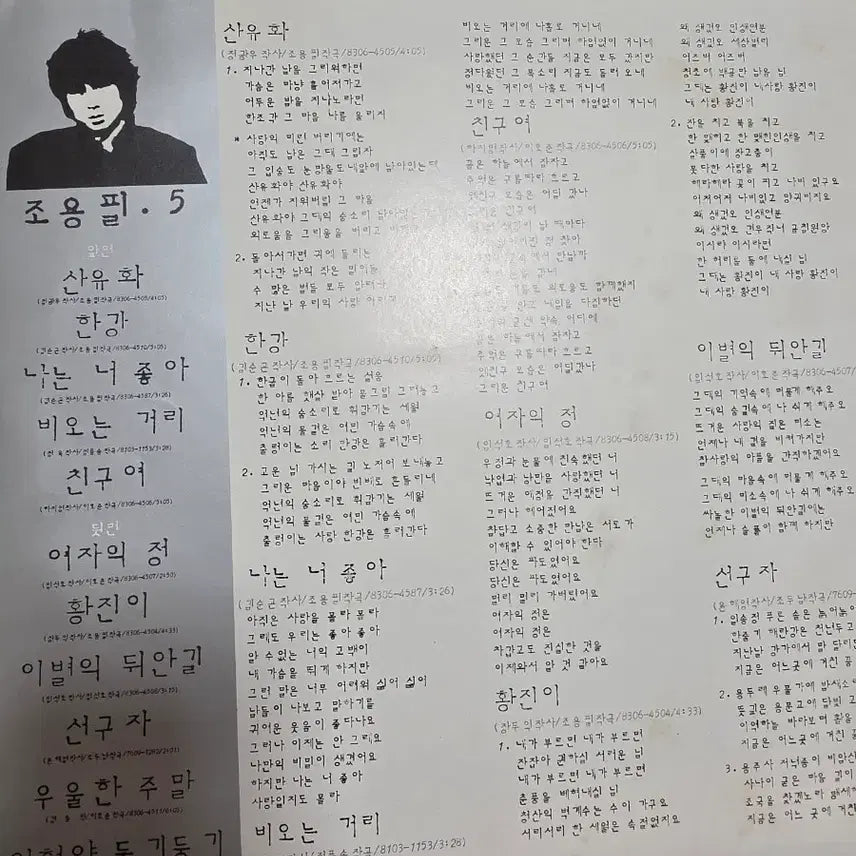 조용필.5
앞면
산유화
(정광우작사/조용필작곡/8306-4505/4:05)
한강
(김순곤작사/조용필작곡/8306-4510/5:05)
나는 너 좋아
(김순곤작사/조용필작곡/8306-4587/3:26)
비오는 거리
8103-1153/3:28)
친구여
(하지영작사/이호준작곡/8306-4506/5:05)
뒷면
여자의 정
황진이
8306-4504/4:33)
이별의 뒤안길
선구자
우울한 주말
산유화
(정광우작사/조용필작곡/8306-4505/4:05)
1. 지나간 날을 그리워하면
가슴은 마냥 흩어져가고
어두운 밤을 지나노라면
한조각 그 마음 나를 울리지
* 사랑의 미련 버리기에는
아직도 남은 그대 그림자
그 입술도 눈망울도 내앞에 남아있는데
산유화야 산유화야
언젠가 지워버릴 그 마음
산유화야 그대의 숨소리
외로움을 그리움을 버리고
2. 돌아서가면 귀에 들리는
지나간 날의 작은 밀어들
수 많은 별들 모두
지난 날 우리의 사랑
한강
(김순곤작사/조용필작곡/8306-4510/5:05)
1. 한굽이 돌아 흐르는 설움
한 아름 햇살 받아 물그림 그려놓고
억년의 숨소리로 휘감기는 세월
억년의 물결은 여민 가슴속에
출렁이는 소리 한강은 흘러간다
2. 고운 님 가시는 길 노저어 보내놓고
그리운 마음이야 빈배로 흔들리네
억년의 숨소리로 휘감기는 세월
억년의 물결은 여민 가슴속에
출렁이는 사랑 한강은 흘러간다
나는 너 좋아
(김순곤작사/조용필작곡/8306-4587/3:26)
아직은 사랑을 몰라 몰라
그래도 우리는 좋아 좋아
알 수없는 너의 고백이
내 가슴을 뛰게 하지만
그런 말은 너무 어려워 싫어 싫어
남들이 나보고 말하기를
귀여운 웃음이 좋다나요
그러나 이제는 안 그래요
나만의 비밀이 생겼어요
하지만 나는 너 좋아
사랑인지도 몰라
비오는 거리
8103-1153/3:28)
비오는 거리에 나홀로 거니네
그리운 그 모습 그리며 하염없이 거니네
사랑했던 그 순간들 지금은 모두 갔지만
정다웠던 그 목소리 지금도 들려 오네
비오는 거리에 나홀로 거니네
그리운 그 모습 그리며 하염없이 거니네
친구여
(하지영작사/이호준작곡/8306-4506/5:05)
꿈은 하늘에서 잠자고
추억은 구름따라 흐르고
친구 모습은 어딜 갔나
그리운 친구여
날 때마다
찾아
만날까
외로움도 함께했지
다짐하던
약속 어디에
꿈은 하늘에서 잠자고
추억은 구름따라 흐르고
친구 모습은 어딜갔나
그리운 친구여
여자의 정
(임석호작사/임석호작곡/8306-4508/3:15)
우정과 눈물에 친숙했던 너
낙엽과 낭만을 사랑했던 너
뜨거운 애정을 간직했던 너
그러나 헤어졌어요
참답고 소중한 만남은 서로가
이해할 수 있어야 한다
당신은 파도였어요
당신은 파도였어요
멀리 멀리 가버렸어요
여자의 정은
여자의 정은
차갑고도 진실한 것을
이제와서 알 것 같아요
황진이
(장두익작사/조용필작곡/8306-4504/4:33)
1. 내가 부르면 내가 부르면
잔잡아 권하실 서러운 님
내가 부르면 내가 부르면
춘풍을 베혀내실 님
청산의 벽계수는 수이 가구요
서리서리 한 세월은 속절없지요
왜 생겼오 인생인연
왜 생겼오 세상별리
어즈버 어즈버
청초에 님
그대는 황진이 내사랑 황진이
내 사랑 황진이
2. 잔을 치고 북을 치고
한 맺히고 한 맺힌인생을 치고
상풍이에 장고춤이
못다한 사랑을 치고
헤라헤라 꽃이 피고 나비 있구요
어져어져 나비없고
왜 생겼오 인생인연
왜 생겼오 견우직녀
이시라 이시라면
한 허리를 둘에 내실 님
그대는 황진이 내 사랑 황진이
내 사랑 황진이
이별의 뒤안길
(임석호작사/이호준작곡/8306-4507/
그대의 기억속에 머물게 해주오
그대의 숨결속에 나 쉬게 해주오
뜨거운 사랑의 짙은 미소는
언제나 내 곁을 비껴가지만
참사랑의 아픔을 간직하겠어요
그대의 마음속에 머물게 해주오
그대의 미소속에 나 쉬게 해주오
싸늘한 이별의 뒤안길에는
언제나 슬픔이 함께 하지만
선구자
(윤해영작사/조두남작곡/7609-
1. 일송정 푸른 솔은 늙어늙어
한줄기 해란강은 천년두고
지난날 강가에서 말 달리던
지금은 어느곳에 거친 꿈
2. 용두레 우물가에 밤새소
뜻깊은 용문교에 달빛 고
이역하늘 바라보며 활을
지금은 어느곳에 거친 꿈
3. 용주사 저녁종이 비암산
사나이 굳은 마음 깊이
조국을 찾겠노라 맹세하
지금은 어느 곳에 거친